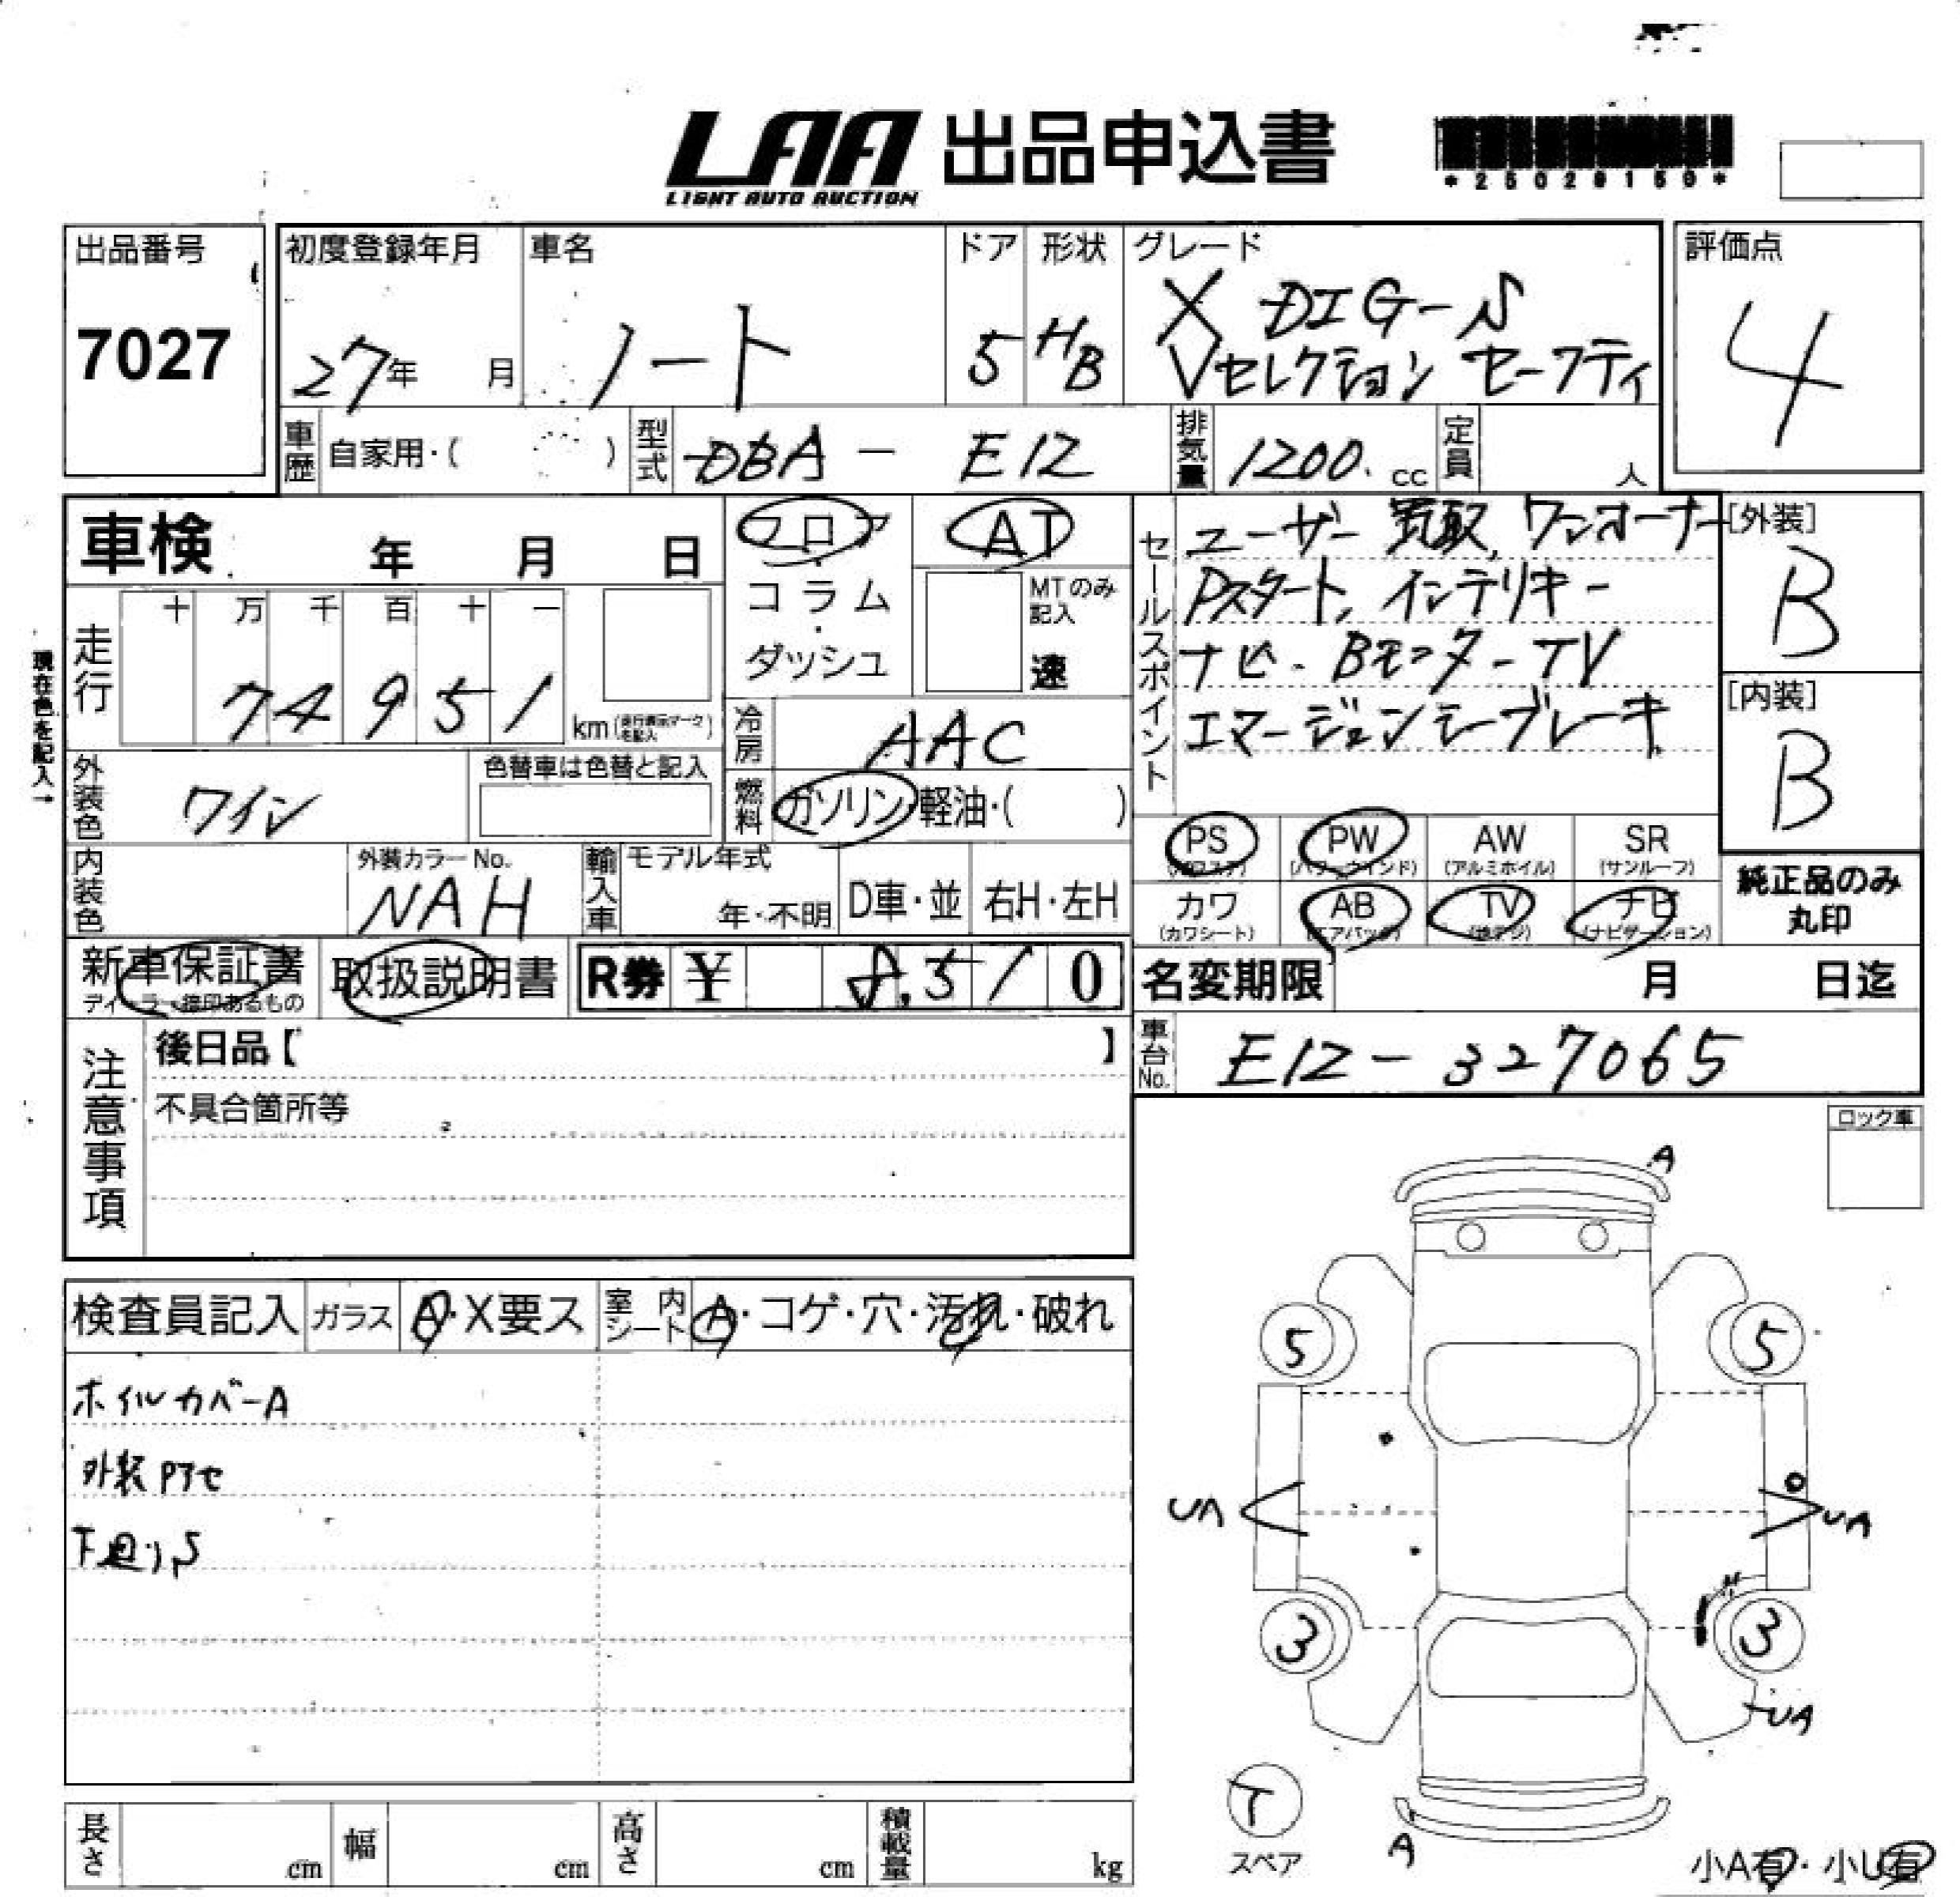 LAA 出品申込書
LIGHT AUTO AUCTION
*25029150*
出品番号
7027
初度登録年月
27年 月
車名
ノート
ドア
5
形状
HB
グレード
X DIG-S
Vセレクション セーフティ
評価点
4
車歴
自家用・( )
型式
DBA - E12
排気量
1200. cc
定員
人
車検 年 月 日
フロア
・
コラム
・
ダッシュ
AT
MTのみ
記入
速
セールスポイント
ユーザー買取, ワンオーナー
Pスタート, インテリキー
ナビ-Bモニター-TV
エマージェンシーブレーキ
[外装]
B
[内装]
B
現在色を記入→
走行
十 万 千 百 十 一
7 4 9 5 1
km(走行表示マークを記入)
冷房
AAC
外装色
ワイン
色替車は色替と記入
燃料
ガソリン・軽油・( )
PS PW AW SR
(パワステ) (パワーウインド) (アルミホイル) (サンルーフ)
カワ AB TV ナビ
(カワシート) (エアバック) (地デジ) (ナビゲーション)
純正品のみ
丸印
内装色
外装カラーNo.
NAH
輸入車
モデル年式
年・不明
D車・並
右H・左H
新車保証書
ディーラー捺印あるもの
取扱説明書
R券 ¥ 8,510
名変期限 月 日迄
車台No.
E12-327065
注意事項
後日品【 】
不具合箇所等
ロック車
A
検査員記入
ガラス
A・X要ス
室内シート
A・コゲ・穴・汚れ・破れ
ホイルカバーA
外装Pアセ
下廻り,S
5 5
UA UA
3 3
UA
T
スペア
A
小A有・小U有
長さ cm
幅 cm
高さ cm
積載量 kg